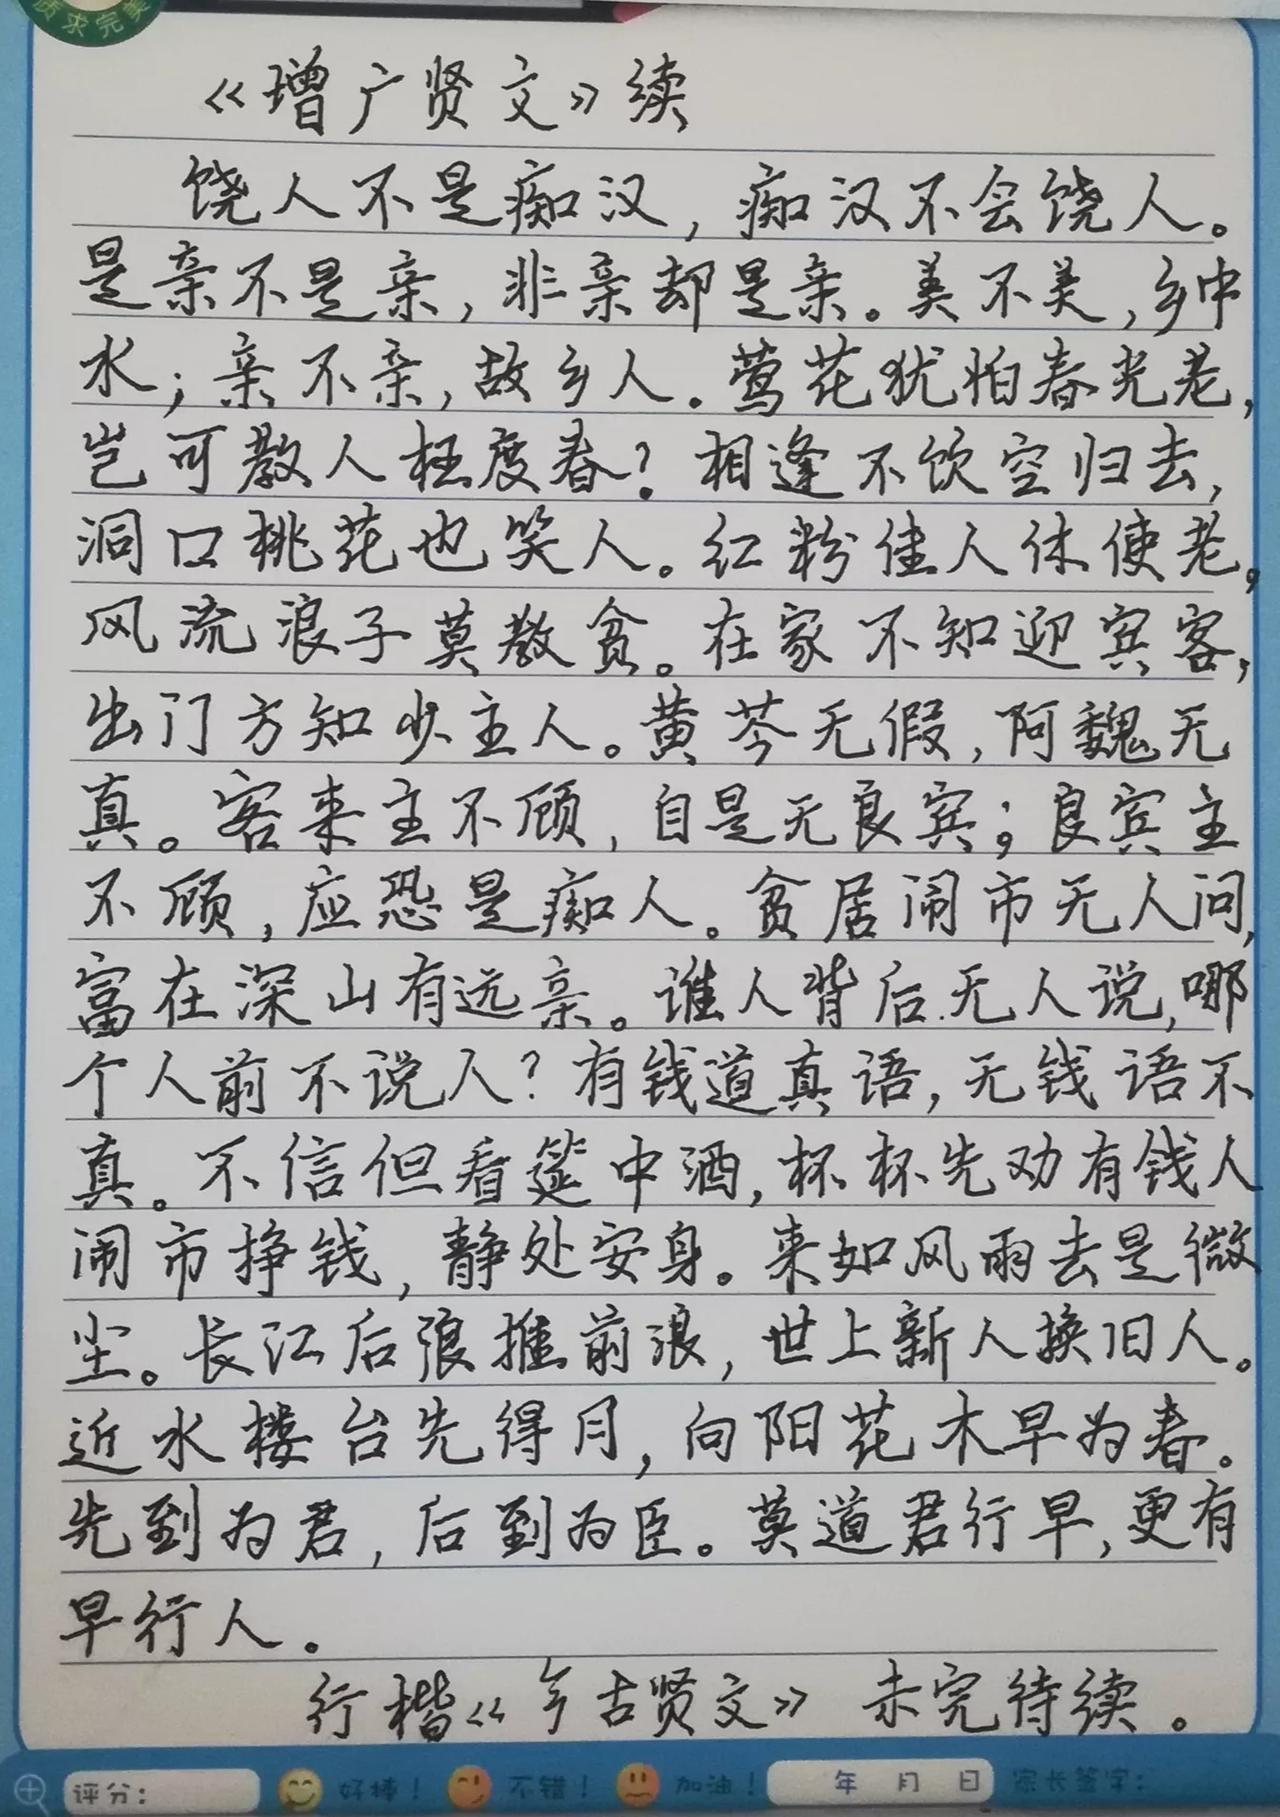 质求完美
《增广贤文》续
饶人不是痴汉，痴汉不会饶人。
是亲不是亲，非亲却是亲。美不美，乡中
水；亲不亲，故乡人。莺花犹怕春光老，
岂可教人枉度春？相逢不饮空归去，
洞口桃花也笑人。红粉佳人休使老，
风流浪子莫教贫。在家不知迎宾客，
出门方知少主人。黄芩无假，阿魏无
真。客来主不顾，自是无良宾；良宾主
不顾，应恐是痴人。贫居闹市无人问，
富在深山有远亲。谁人背后无人说，哪
个人前不说人？有钱道真语，无钱语不
真。不信但看筵中酒，杯杯先劝有钱人
闹市挣钱，静处安身。来如风雨去是微
尘。长江后浪推前浪，世上新人换旧人。
近水楼台先得月，向阳花木早为春。
先到为君，后到为臣。莫道君行早，更有
早行人。
行楷《今古贤文》未完待续。
评分： 好棒！ 不错！ 加油！ 年 月 日 家长签字：